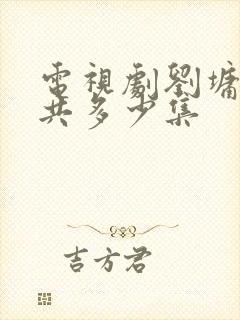 電視劇劉墉
共多少集
吉方君